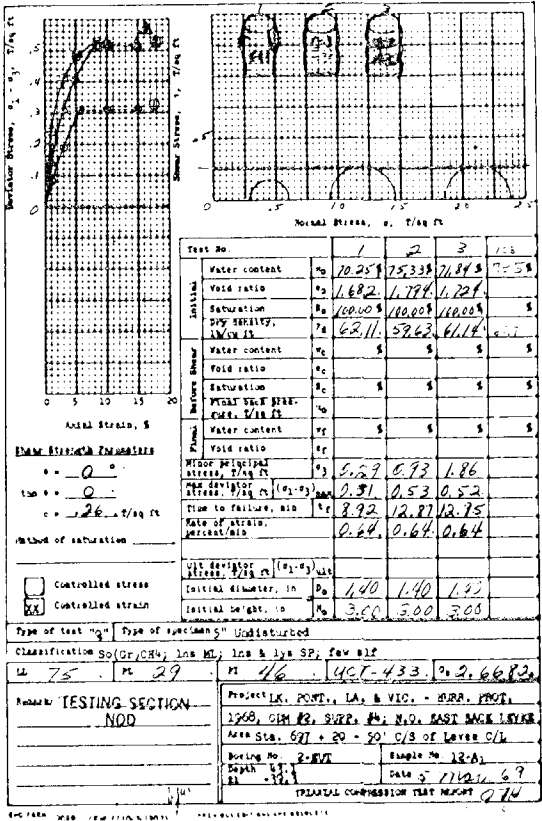 Deviator Stress, σ1 - σ3, T/sq ft
.5
.4
.3
.2
.1
0
0 5 10 15 20
Axial Strain, %
Shear Stress, τ, T/sq ft
1 2 3
.5
0 .5 1.0 1.5 2.0 2.5
Normal Stress, σ, T/sq ft
Shear Strength Parameters
φ = 0 °
tan φ = 0
c = .26 T/sq ft
Method of saturation
Controlled stress
XX Controlled strain
Test No. 1 2 3
Initial
Water content w0 70.25% 75.33% 71.84%
Void ratio e0 1.682 1.794 1.724
Saturation S0 100.00% 100.00% 100.00%
Dry density, lb/cu ft γd 62.11 59.63 61.14
Before Shear
Water content wc % % % %
Void ratio ec
Saturation Sc % % % %
Final back pressure, T/sq ft u0
Final
Water content wf % % % %
Void ratio ef
Minor principal stress, T/sq ft σ3 0.93 1.86
Max deviator stress, T/sq ft (σ1-σ3)max 0.31 0.53 0.52
Time to failure, min tf 8.92 12.87 12.85
Rate of strain, percent/min 0.64 0.64 0.64
Ult deviator stress, T/sq ft (σ1-σ3)ult
Initial diameter, in D0 1.40 1.40
Initial height, in H0 3.00 3.00 3.00
Type of test "Q" Type of specimen 5" Undisturbed
Classification So(Gr/CH4; lns ML; lns & lys SP; few slf
LL 75 PL 29 PI 46 UCT-433 Gs 2.6682
Remarks TESTING SECTION
NOD
Project LK. PONT., LA, & VIC. - HURR. PROT.
1968, GDM #2, SUPP. #4; N.O. EAST BACK LEVEE
Area Sta. 697 + 20 - 50' C/S of Levee C/L
Boring No. 2-EUT Sample No. 12-A1
Depth
El
Date 5 69
TRIAXIAL COMPRESSION TEST REPORT